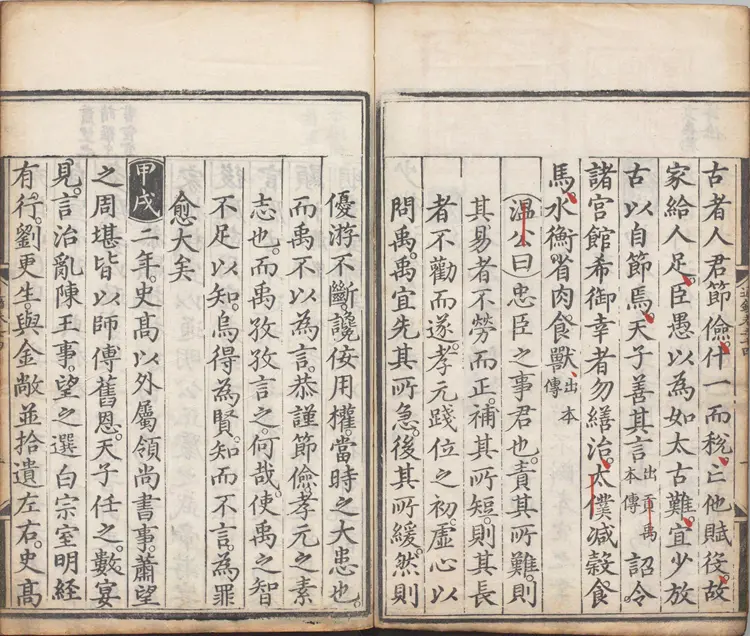 古者人君節儉。什一而稅。亡他賦役。故
家給人足。臣愚以為如太古難。宜少放
古以自節焉。天子善其言出貢禹本傳詔令
諸宮館希御幸者勿繕治。太僕減穀食
馬。水衡省肉食獸出本傳
溫公曰忠臣之事君也。責其所難。則
其易者不勞而正。補其所短。則其長
者不勸而遂。孝元踐位之初。虛心以
問禹。禹宜先其所急。後其所緩。然則
優游不斷。讒佞用權。當時之大患也。
而禹不以為言。恭謹節儉。孝元之素
志也。而禹孜孜言之。何哉。使禹之智
不足以知。烏得為賢。知而不言。為罪
愈大矣
甲戌二年。史高以外屬領尚書事。蕭望
之周堪皆以師傅舊恩。天子任之。數宴
見。言治亂。陳王事。望之選白宗室明經
有行。劉更生。與金敞並拾遺左右。史高